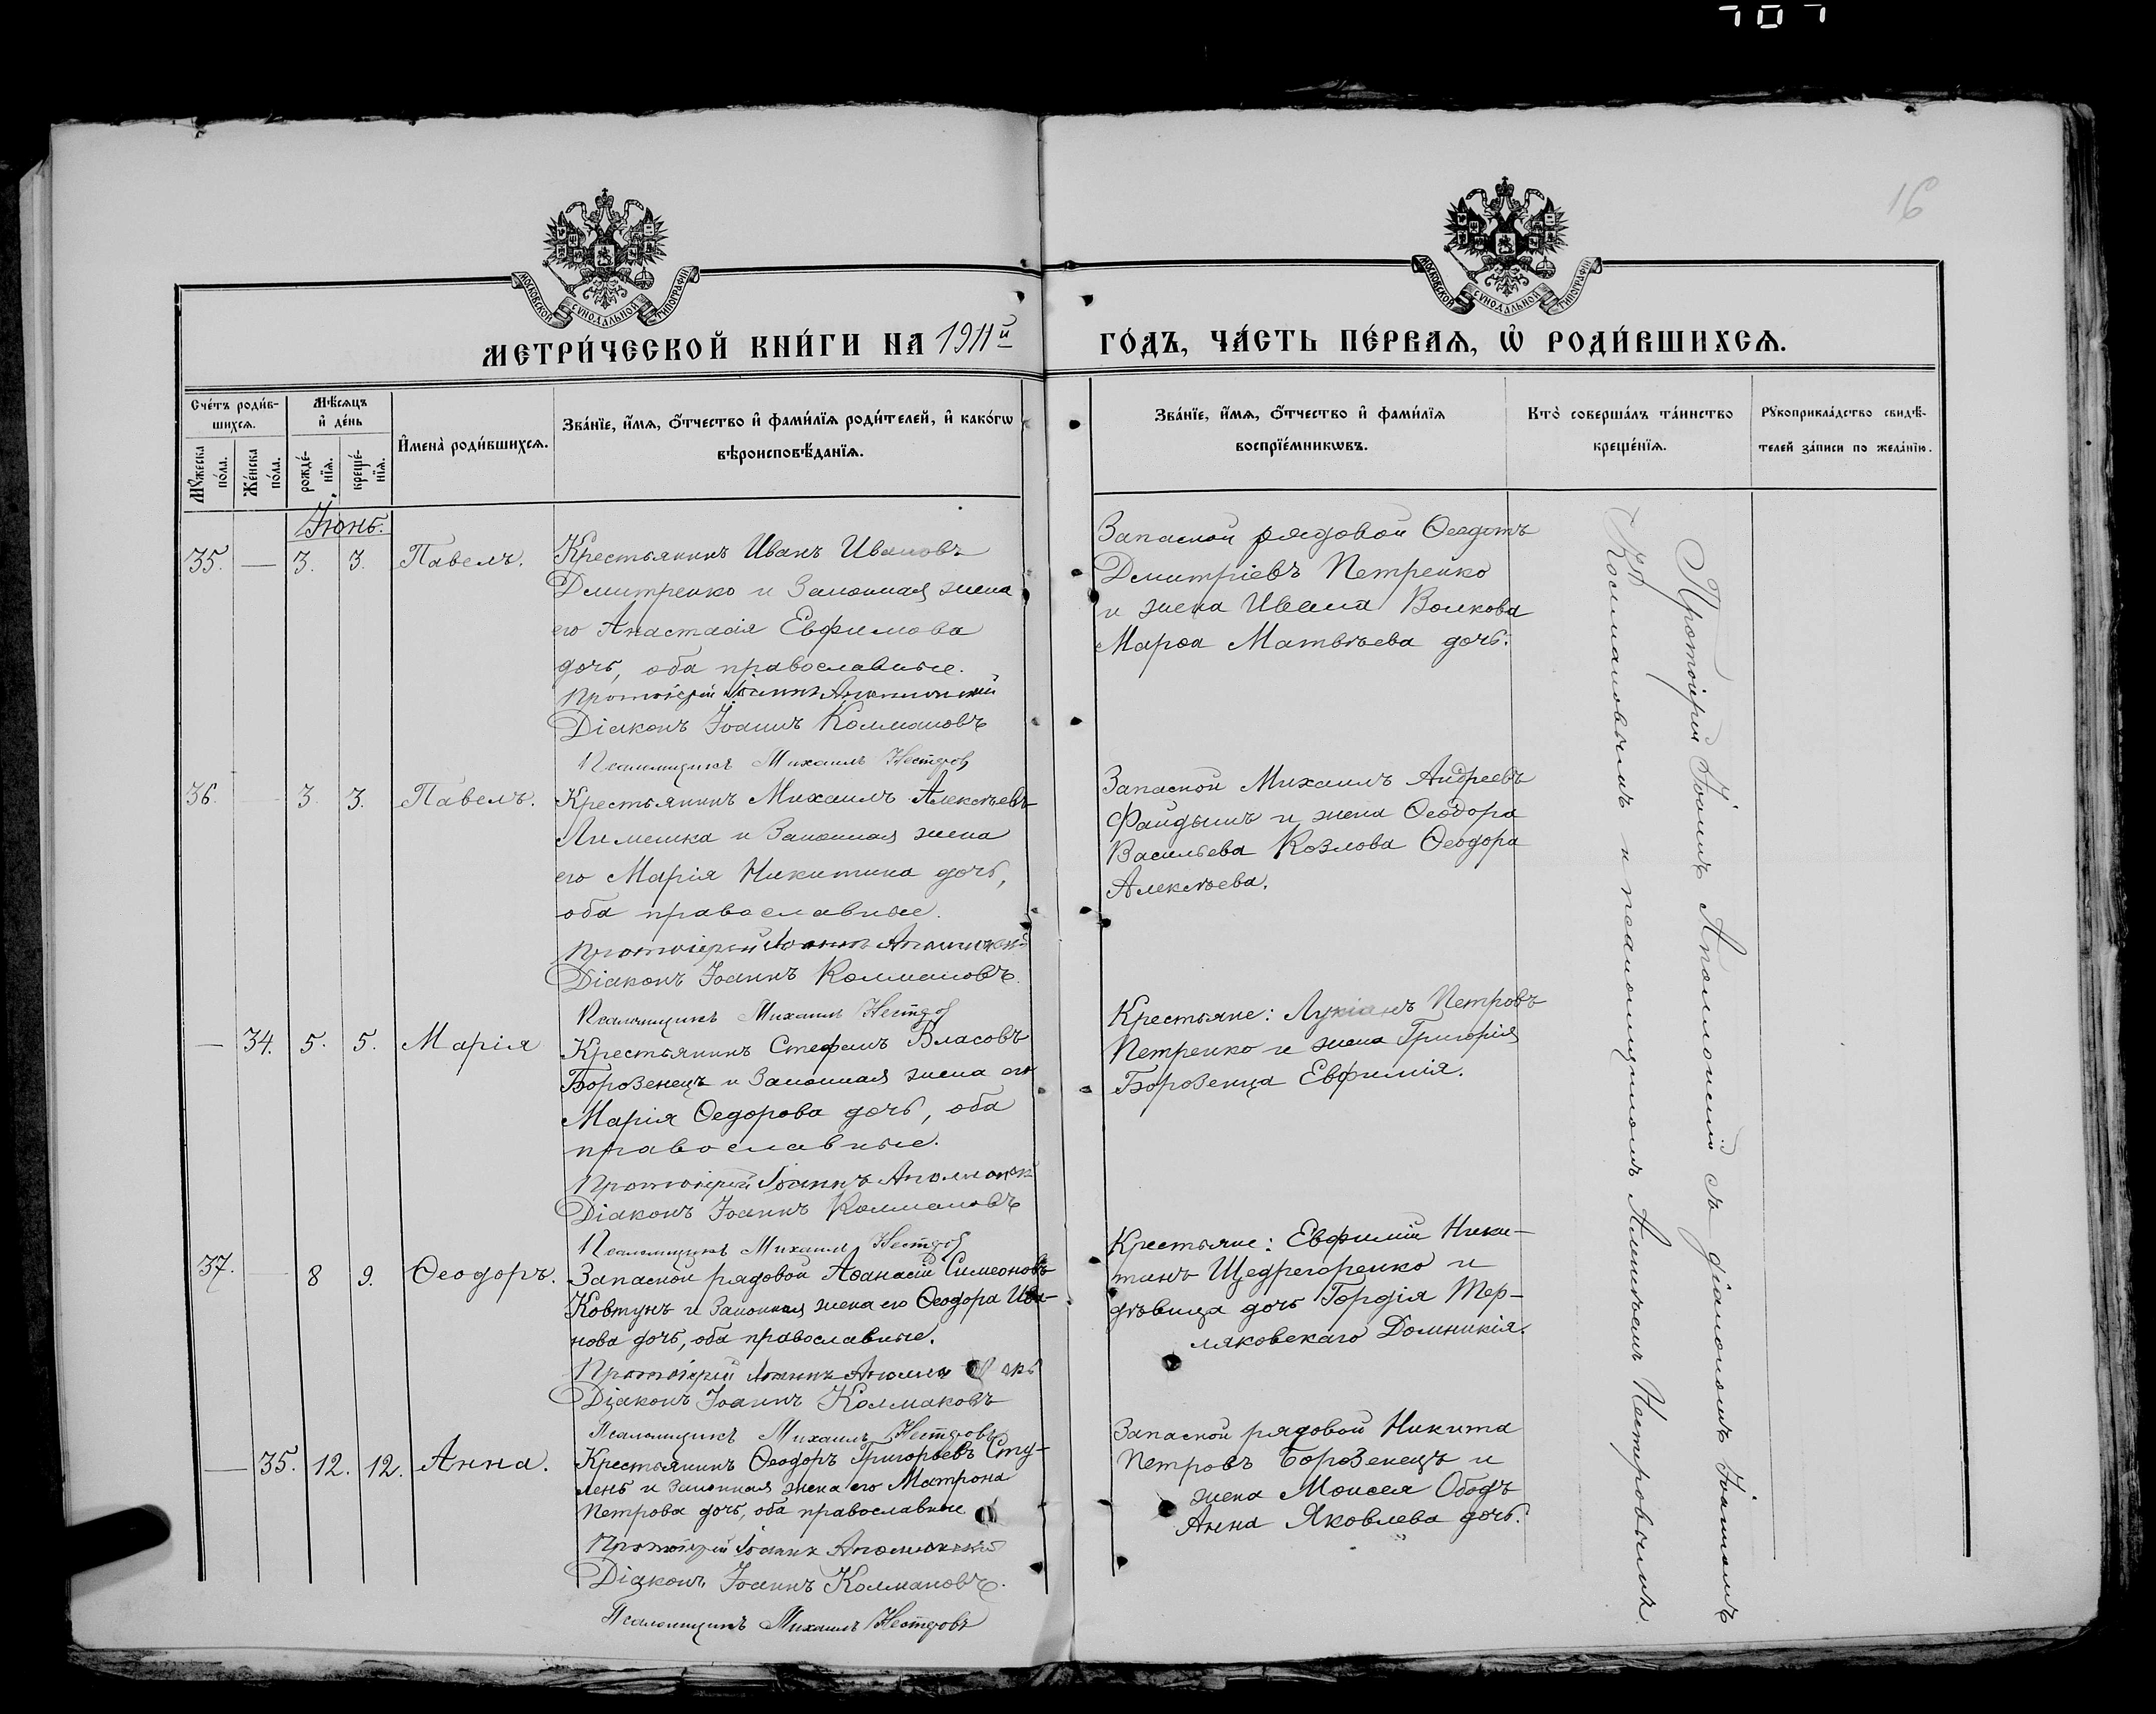 707
16
МОСКОВСКОЙ СѴНОДАЛЬНОЙ ТИПОГРАФІИ
МОСКОВСКОЙ СѴНОДАЛЬНОЙ ТИПОГРАФІИ
МЕТРИ́ЧЕСКОЙ КНИ́ГИ НА 1911й
ГО́ДЪ, ЧА́СТЬ ПЕ́РВАѦ, Ѡ҆ РОДИ́ВШИХСѦ.
Сче́тъ роди́в-
шихсѧ.
Мꙋ́жеска
по́ла.
Же́нска
по́ла.
Мѣ́сѧцъ
и҆ де́нь
рожде́-
нїѧ.
креще́-
нїѧ.
И҆мена̀ роди́вшихсѧ.
Зва́нїе, и҆́мѧ, ѻ҆́тчество и҆ фами́лїѧ роди́телей, и҆ како́гѡ
вѣроисповѣ́данїѧ.
Зва́нїе, и҆́мѧ, ѻ҆́тчество и҆ фами́лїѧ
воспрїе́мникѡвъ.
Кто̀ соверша́лъ та́инство
креще́нїѧ.
Рꙋкоприкла́дство свидѣ́-
телей за́писи по жела́нїю.
Іюнь.
35. — 3. 3. Павелъ.
Крестьянинъ Иванъ Ивановъ
Дмитренко и законная жена
его Анастасія Евфимова
дочь, оба православные.
Протоіерей Іоаннъ Аполлонскій
Діаконъ Іоаннъ Колмаковъ
Псаломщикъ Михаилъ Нестеров
Запасной рядовой Ѳеодотъ
Дмитріевъ Петренко
и жена Ивана Волкова
Марѳа Матвѣева дочь.
36. 3. 3. Павелъ.
Крестьянинъ Михаилъ Алексѣевъ
и законная жена
его Марія Никитина дочь,
оба православные.
Протоіерей Іоаннъ Аполлонскій
Діаконъ Іоаннъ Колмаковъ.
Псаломщикъ Михаилъ Нестеров
Запасной Михаилъ Андреевъ
и жена Ѳеодора
Васильева Козлова Ѳеодора
Алексѣева.
— 34. 5. 5. Марія
Крестьянинъ Стефанъ Власовъ
Борозенецъ и законная жена его
Марія Ѳедорова дочь, оба
православные.
Протоіерей Іоаннъ Аполлонскій
Діаконъ Іоаннъ Колмаковъ
Псаломщикъ Михаилъ Нестеров
Крестьяне: Лукіанъ Петровъ
Петренко и жена Григорія
Борозенца Евфимія.
37. 8 9. Ѳеодоръ.
Запасной рядовой Аѳанасій Симеоновъ
Ковтунъ и законная жена его Ѳеодора Ива-
нова дочь, оба православные.
Протоіерей Іоаннъ
Діаконъ Іоаннъ Колмаковъ
Псаломщикъ Михаилъ Нестеровъ
Крестьяне: Евфимій Ники-
тинъ Щедрегоренко и
дѣвица дочь Гордія Тер-
ляковскаго Домникія.
— 35. 12. 12. Анна.
Крестьянинъ Ѳеодоръ Григорьевъ Сту-
лень и законная жена его Матрона
Петрова дочь, оба православные
Протоіерей Іоаннъ Аполлонскій
Діаконъ Іоаннъ Колмаковъ.
Псаломщикъ Михаилъ Нестеровъ
Запасной рядовой Никита
Петровъ Борозенецъ и
жена Моисея Ободъ
Анна Яковлева дочь.
Протоіерей Іоаннъ Аполлонскій съ діакономъ Іоанномъ
Колмаковымъ и псаломщикомъ Нестеровымъ.